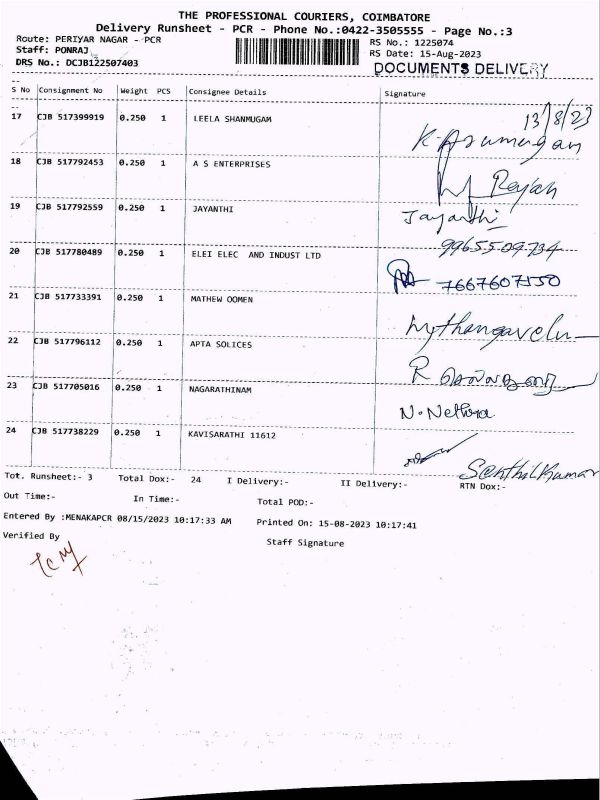 THE PROFESSIONAL COURIERS, COIMBATORE
Delivery Runsheet - PCR - Phone No.:0422-3505555 - Page No.:3
Route: PERIYAR NAGAR - PCR
RS No.: 1225074
Staff: PONRAJ
RS Date: 15-Aug-2023
DRS No.: DCJB122507403
DOCUMENTS DELIVERY
S No Consignment No Weight PCS Consignee Details Signature
13/8/23
17 CJB 517399919 0.250 1 LEELA SHANMUGAM
K. Arumugam
18 CJB 517792453 0.250 1 A S ENTERPRISES
Rajan
19 CJB 517792559 0.250 1 JAYANTHI
Jayanthi
9965509734
20 CJB 517780489 0.250 1 ELEI ELEC AND INDUST LTD
7667607550
21 CJB 517733391 0.250 1 MATHEW OOMEN
22 CJB 517796112 0.250 1 APTA SOLICES
R
23 CJB 517705016 0.250 1 NAGARATHINAM
N. Nethra
24 CJB 517738229 0.250 1 KAVISARATHI 11612
Senthil Kumar
Tot. Runsheet:- 3 Total Dox:- 24 I Delivery:- II Delivery:- RTN Dox:-
Out Time:- In Time:- Total POD:-
Entered By :MENAKAPCR 08/15/2023 10:17:33 AM Printed On: 15-08-2023 10:17:41
Verified By Staff Signature